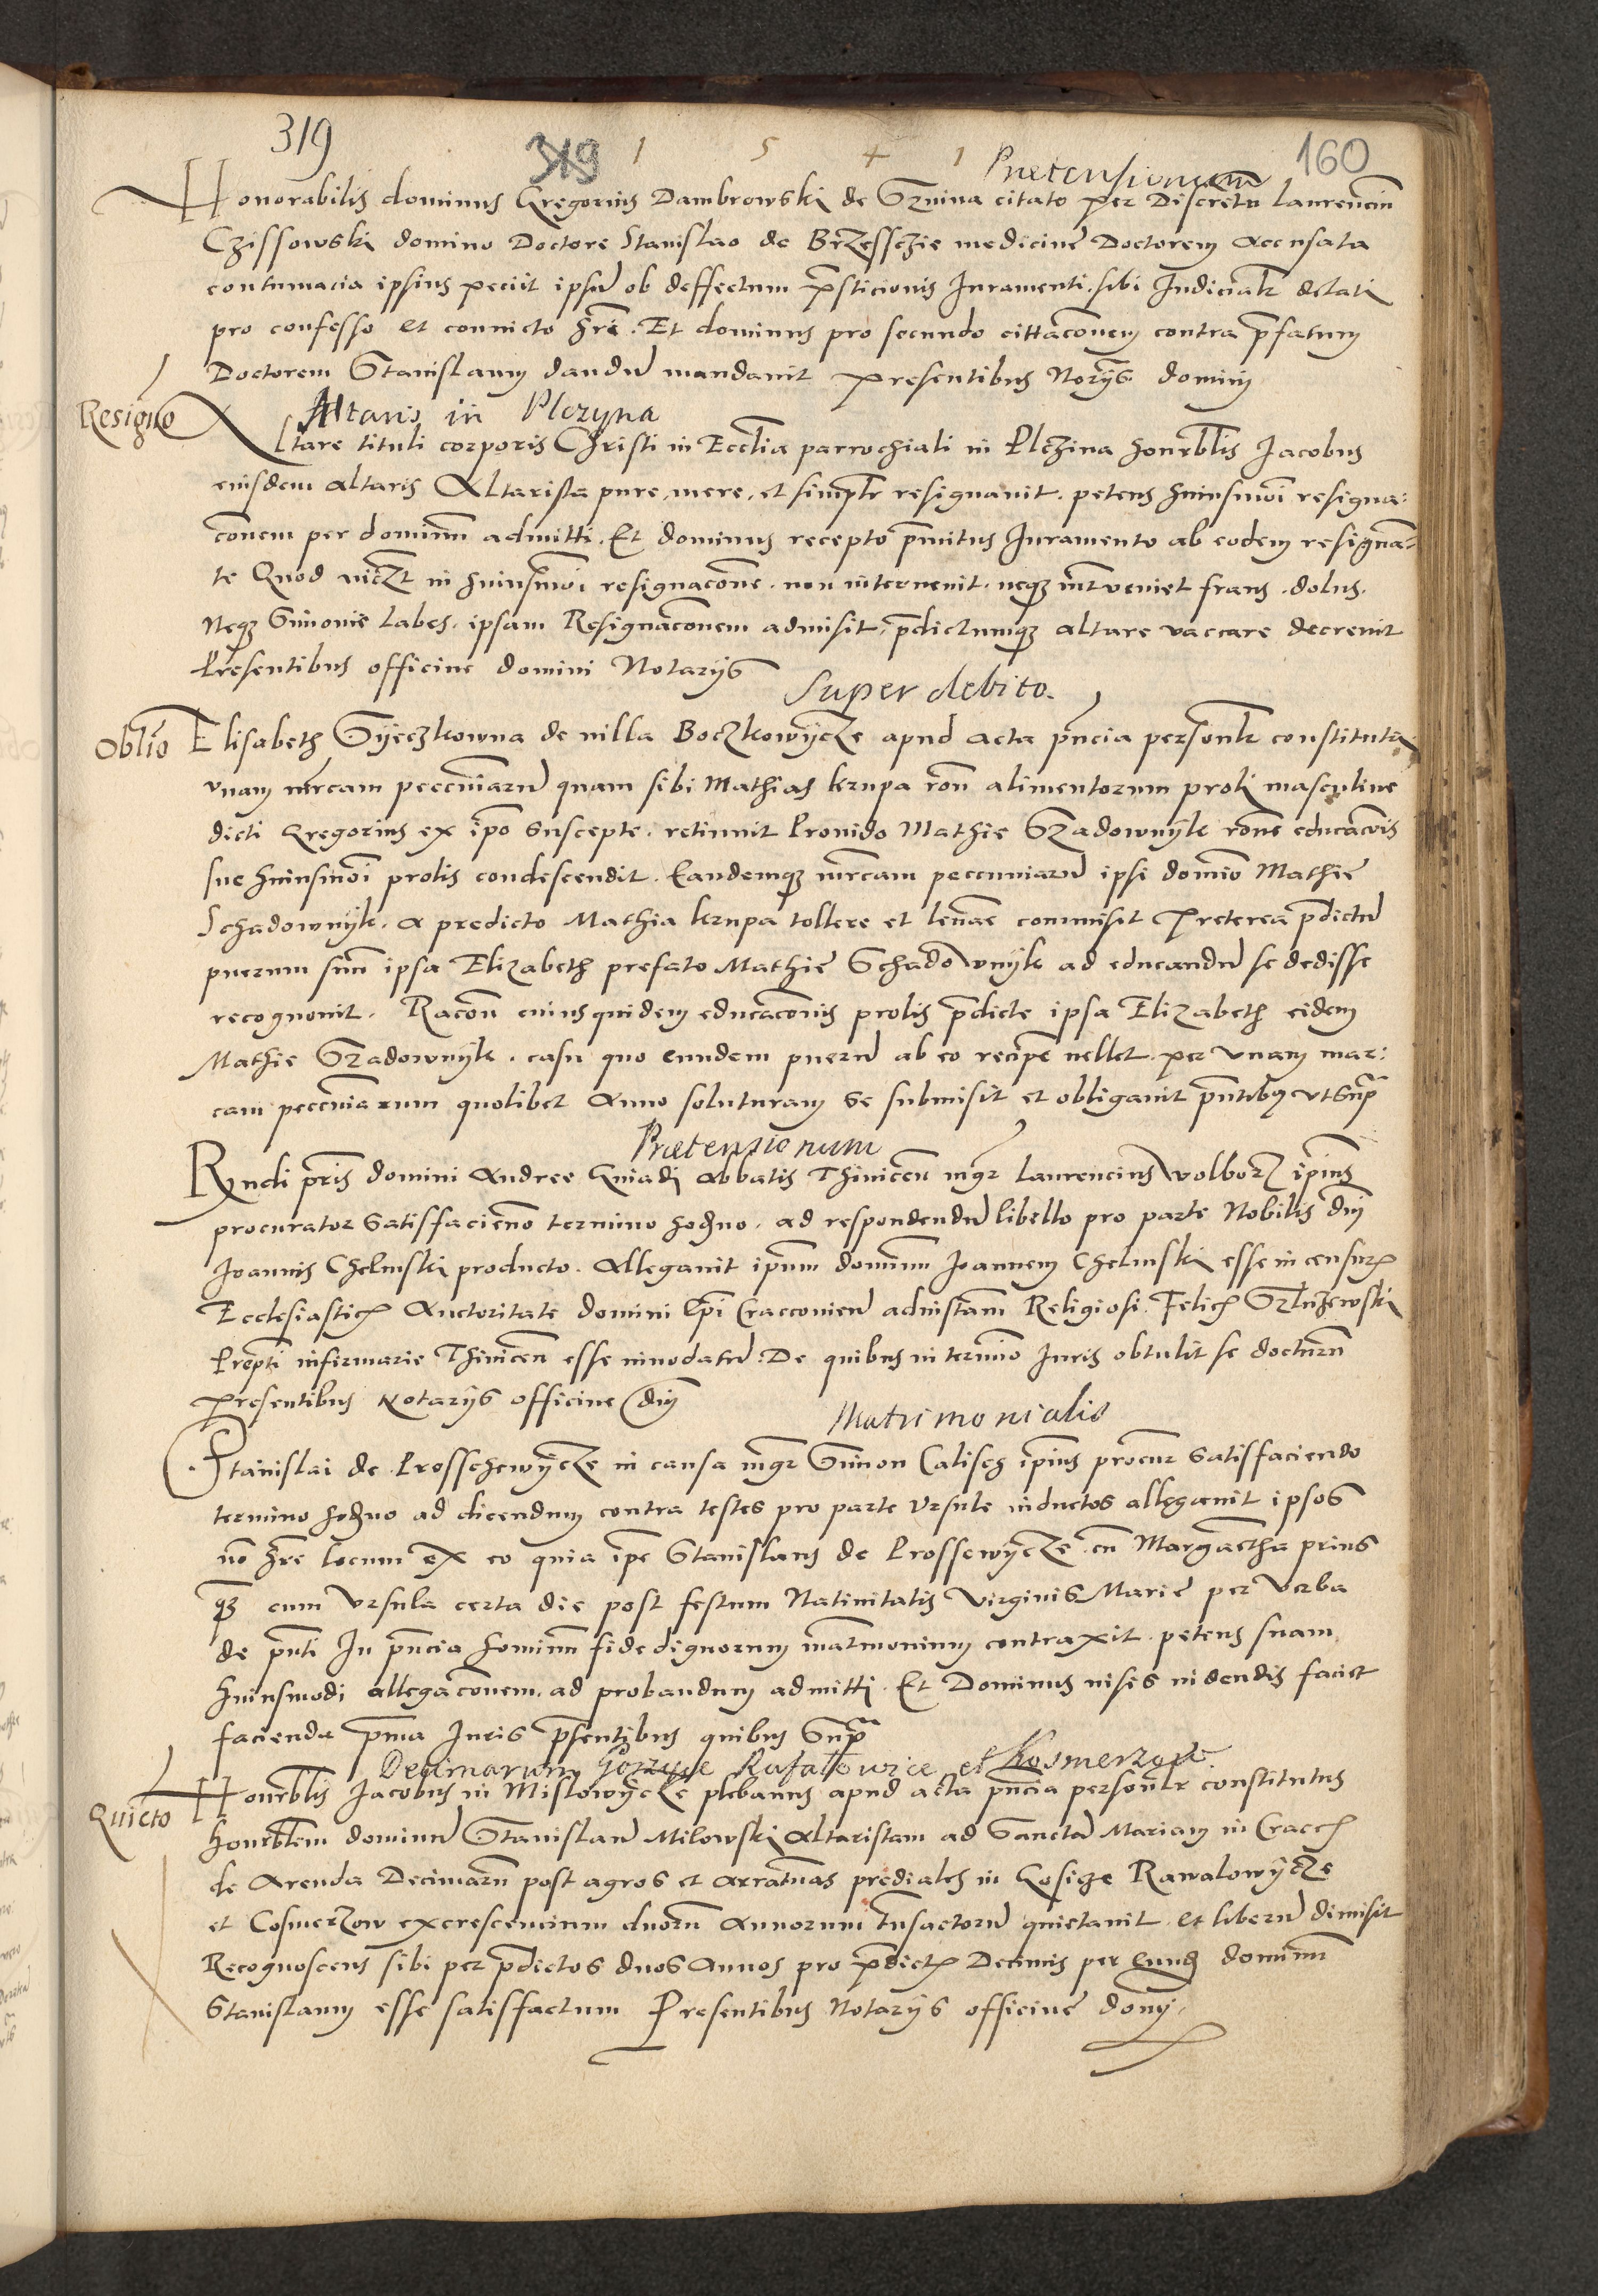 319
319 1 5 4 1 160
Praetensionum
Honorabilis dominus Gregorius Dambrowski de Sznina citato per Discretu laurencin
Czissowski domino Doctore Stanislao de Brzesschie medicine Doctorem accusata
contumacia ipsius peciit ipsu ob deffectum p̄sticionis Iuramenti sibi Iudicialr delati
pro confesso et conuicto hr̄i. Et dominus pro secundo cittac̄onem contra p̄fatum
Doctorem Stanislaum dandu mandauit presentibus Norijs dominj
Resigno
Altaris in Plczyna
Altare tituli corporis Christi in Ecclia parrochiali in Plchina honrblis Jacobus
eiusdem altaris Altarista pure, mere, et simplr resignauit. petens huiusmoi resigna:
c̄onem per dominum admitti. Et dominus recepto p̄mitus Iuramento ab eodem resigna=
te Quod viczt in huiusmoi resignac̄one. non interuenit. neq; int̄veniet fraus. dolus.
Neq; Simonie labes. ipsam Resignac̄onem admisit, p̄dictumq; altare vaccare decreuit
Presentibus officine domini Notarijs
Super debito.
Oblio Elisabeth Syeczkowna de villa Boczkowycze apud acta pn̄cia personlr constituta
vnam mrcam peccuniaru quam sibi Mathias krupa ron̄ alimentorum proli masculine
dicti Gregorius ex ip̄o suscepte. retinuit Prouido Mathie Szadownyk ron̄e educac̄ois
sue huiusmoi prolis condescendit. Eandemq; mrcam peccuniaru ipsi domio Mathie
Schadownyk. a predicto Mathia krupa tollere et leuare commisit Preterea p̄dictu
puerum suu ipsa Elizabeth prefato Mathie Schadownyk ad educandu se dedisse
recognouit. Rac̄on cuiusquidem educac̄onis prolis p̄dicte ipsa Elizabeth eidem
Mathie Szadownyk. casu quo eundem pueru ab eo recip̄e vellet per vnam mar:
cam peccuniarum quolibet Anno soluturam se submisit et obligauit pn̄tibus vt Supra
Praetensionum
Rndi pris domini Andree Gniadi Abbatis Thinicen mgr laurencius wolborz ip̄ius
procurator satisfacien̄o termino hodno. ad respondendu libello pro parte Nobilis dnj
Joannis Chelmski producto. Alleganit ip̄um dominum Joannem Chelmski esse in censuris
Ecclesiasticis Auctoritate domini Epi Cracconien̄ adinstam Religiosi Felicis Szluzewski
Prepti infirmarie Thinicen esse innodatu. De quibus in termio Iuris obtulit se docturu
presentibus Notarijs officine dnj
Matrimonialis
Stanislai de Prosschewycze in causa mgr Simon Calisch ip̄ius procur satisfaciendo
termino hodno ad dicendum contra testes pro parte Vrsule inductos alleganit ipsos
no hr̄e locum ex eo quia ip̄e Stanislaus de Prossewycze cu Margaretha prius
q̄; cum Vrsula certa die post festum Natiuitatis virginis Marie per Verba
de pn̄ti In pn̄cia hominum fidedignorum matrimonium contraxit. petens suam
huiusmodi allegac̄onem. ad probandum admitti. Et Dominus visis videndis faciet
facienda p̄ma Iuris p̄sentibus quibus Supra
Decimarum Gorzyce Rafałowice et Kosmerzow.
Quicto Honrblis Jacobus in Mislowycze plebanus apud acta pn̄cia personlr constitutus
honrblem dominu Stanislau Milowski Altaristam ad Sancta Mariam in Cracc
de Arenda Decimaru post agros et arraturas prediales in Gosicze Rawalowycze
et Cosmerzow excrescencium duoru Annorum tn̄sactoru quietauit et liberu dimisit
Recognoscens sibi per p̄dictos duos Annos pro p̄dictis Decimis per eund dominum
Stanislaum esse satisfactum Presentibus Notarijs officine domj